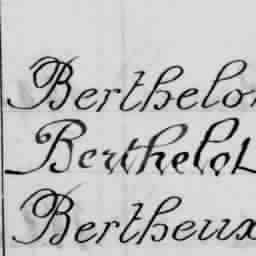 Berthelo
Berthelot
Bertheux